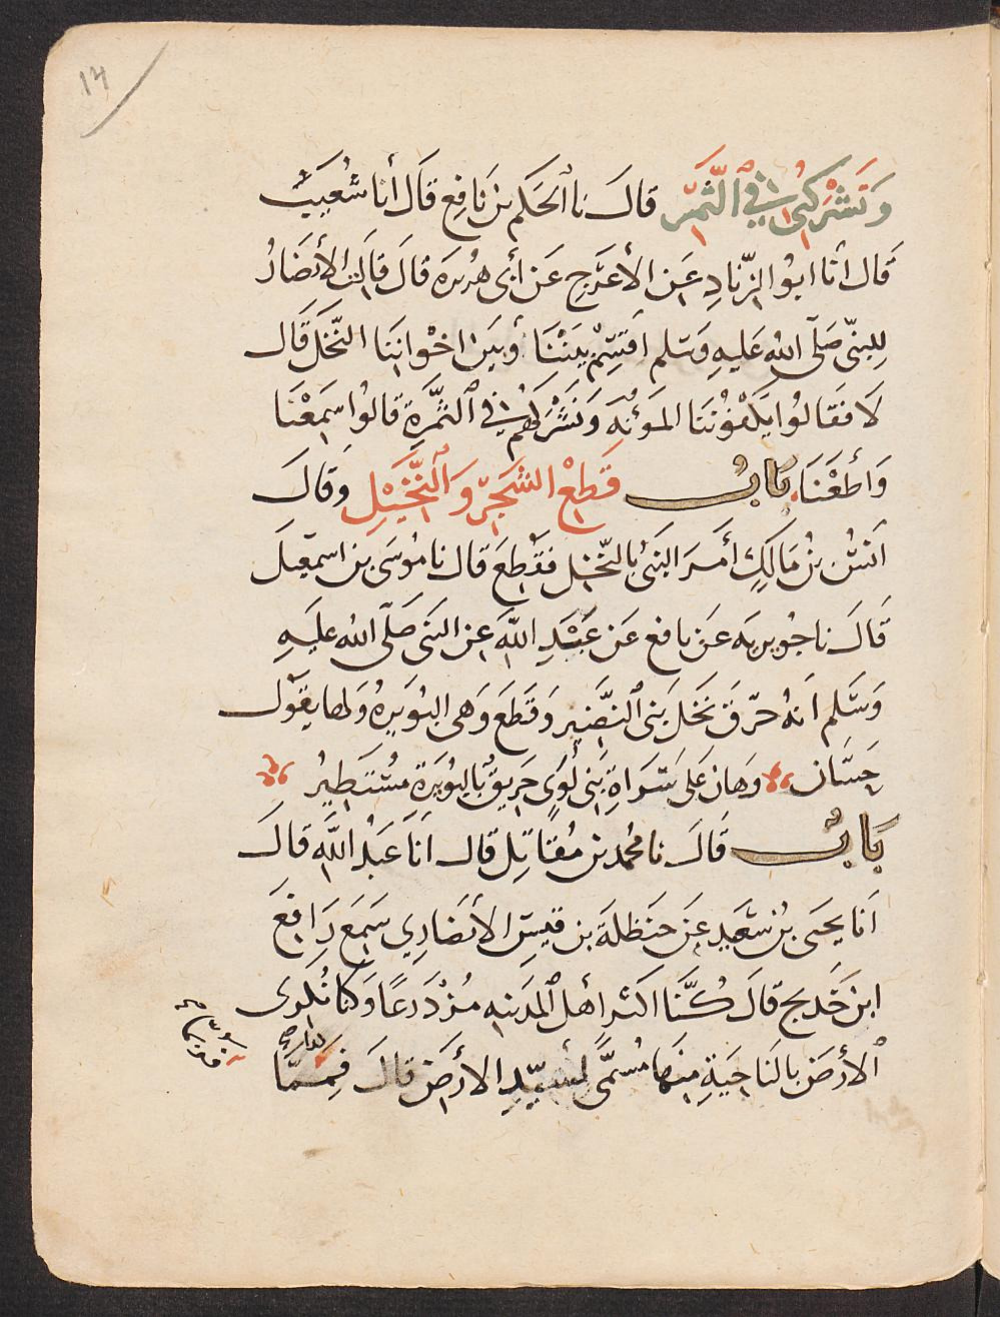 ١٣
وَتَشْرَكُنِي فِي ٱلثَّمَرِ قَالَ نا ٱلحَكَم بن نَافِع قَالَ أنا شُعَيبٌ
قَال انا ابوُ الزِّنادِ عَن الأعرَجِ عَن أبى هُرَيرَه قالَ قَالَت الأنصَارُ
للِنبّىِ صَلّى الله عَليهِ وَسَلم اقسِمْ بَينَنَا وَبَينَ اخْوانِنَا النّخلَ قَال
لَا فَقَالوُا يَكْفُونَنَا المَؤنَهَ وَنَشْرَكهُم فِي ٱلثَّمَرَةِ قالوُا سَمِعْنَا
وَأطَعْنَا بَابُ قَطعْ الشَجَرِ وَالنَّخِيْلِ وَقالَ
أنَسُ بْنُ مَالِكٍ أَمَرَ النبَىُّ بالنّخل فقُطِعَ قال نا مُوسَى بن اسمعِيلَ
قَالَ نا جُوَيريَه عَن نافع عَن عَبْدِ اللَّهِ عن النبَى صَلّى الله عليَهِ
وَسَلم أنهُ حرّقَ نَخلَ بَنِى ٱلنَّضِير وَقَطَعَ وَهى البُوَيرهُ وَلها يقوْل
حَسّان وَهَان عَلى سَرَاةِ بَنِى لُؤيٍ حَرِيقٌ بالبُوَيرَةِ مُسْتَطِيرُ
بَابُ قَالَ نا محُمد بن مُقَاتِل قال انَا عَبدُ اللَّه قالَ
أنَا يحَيى بنُ سَعَيد عَن حنظلةَ بن قَيسٍ الأنصَارِي سَمِعَ رَافِعَ
ابن خَدِيج قالَ كُنَّا اكثر أهل ٱلمدَينهِ مُزْدَرعًا وَكنا نُكرِى
ٱلأرْضَ بالنَاحَيةِ مِنهَا مُسمًّى لسَيّدِ الأرضِ قالَ فَممَّا